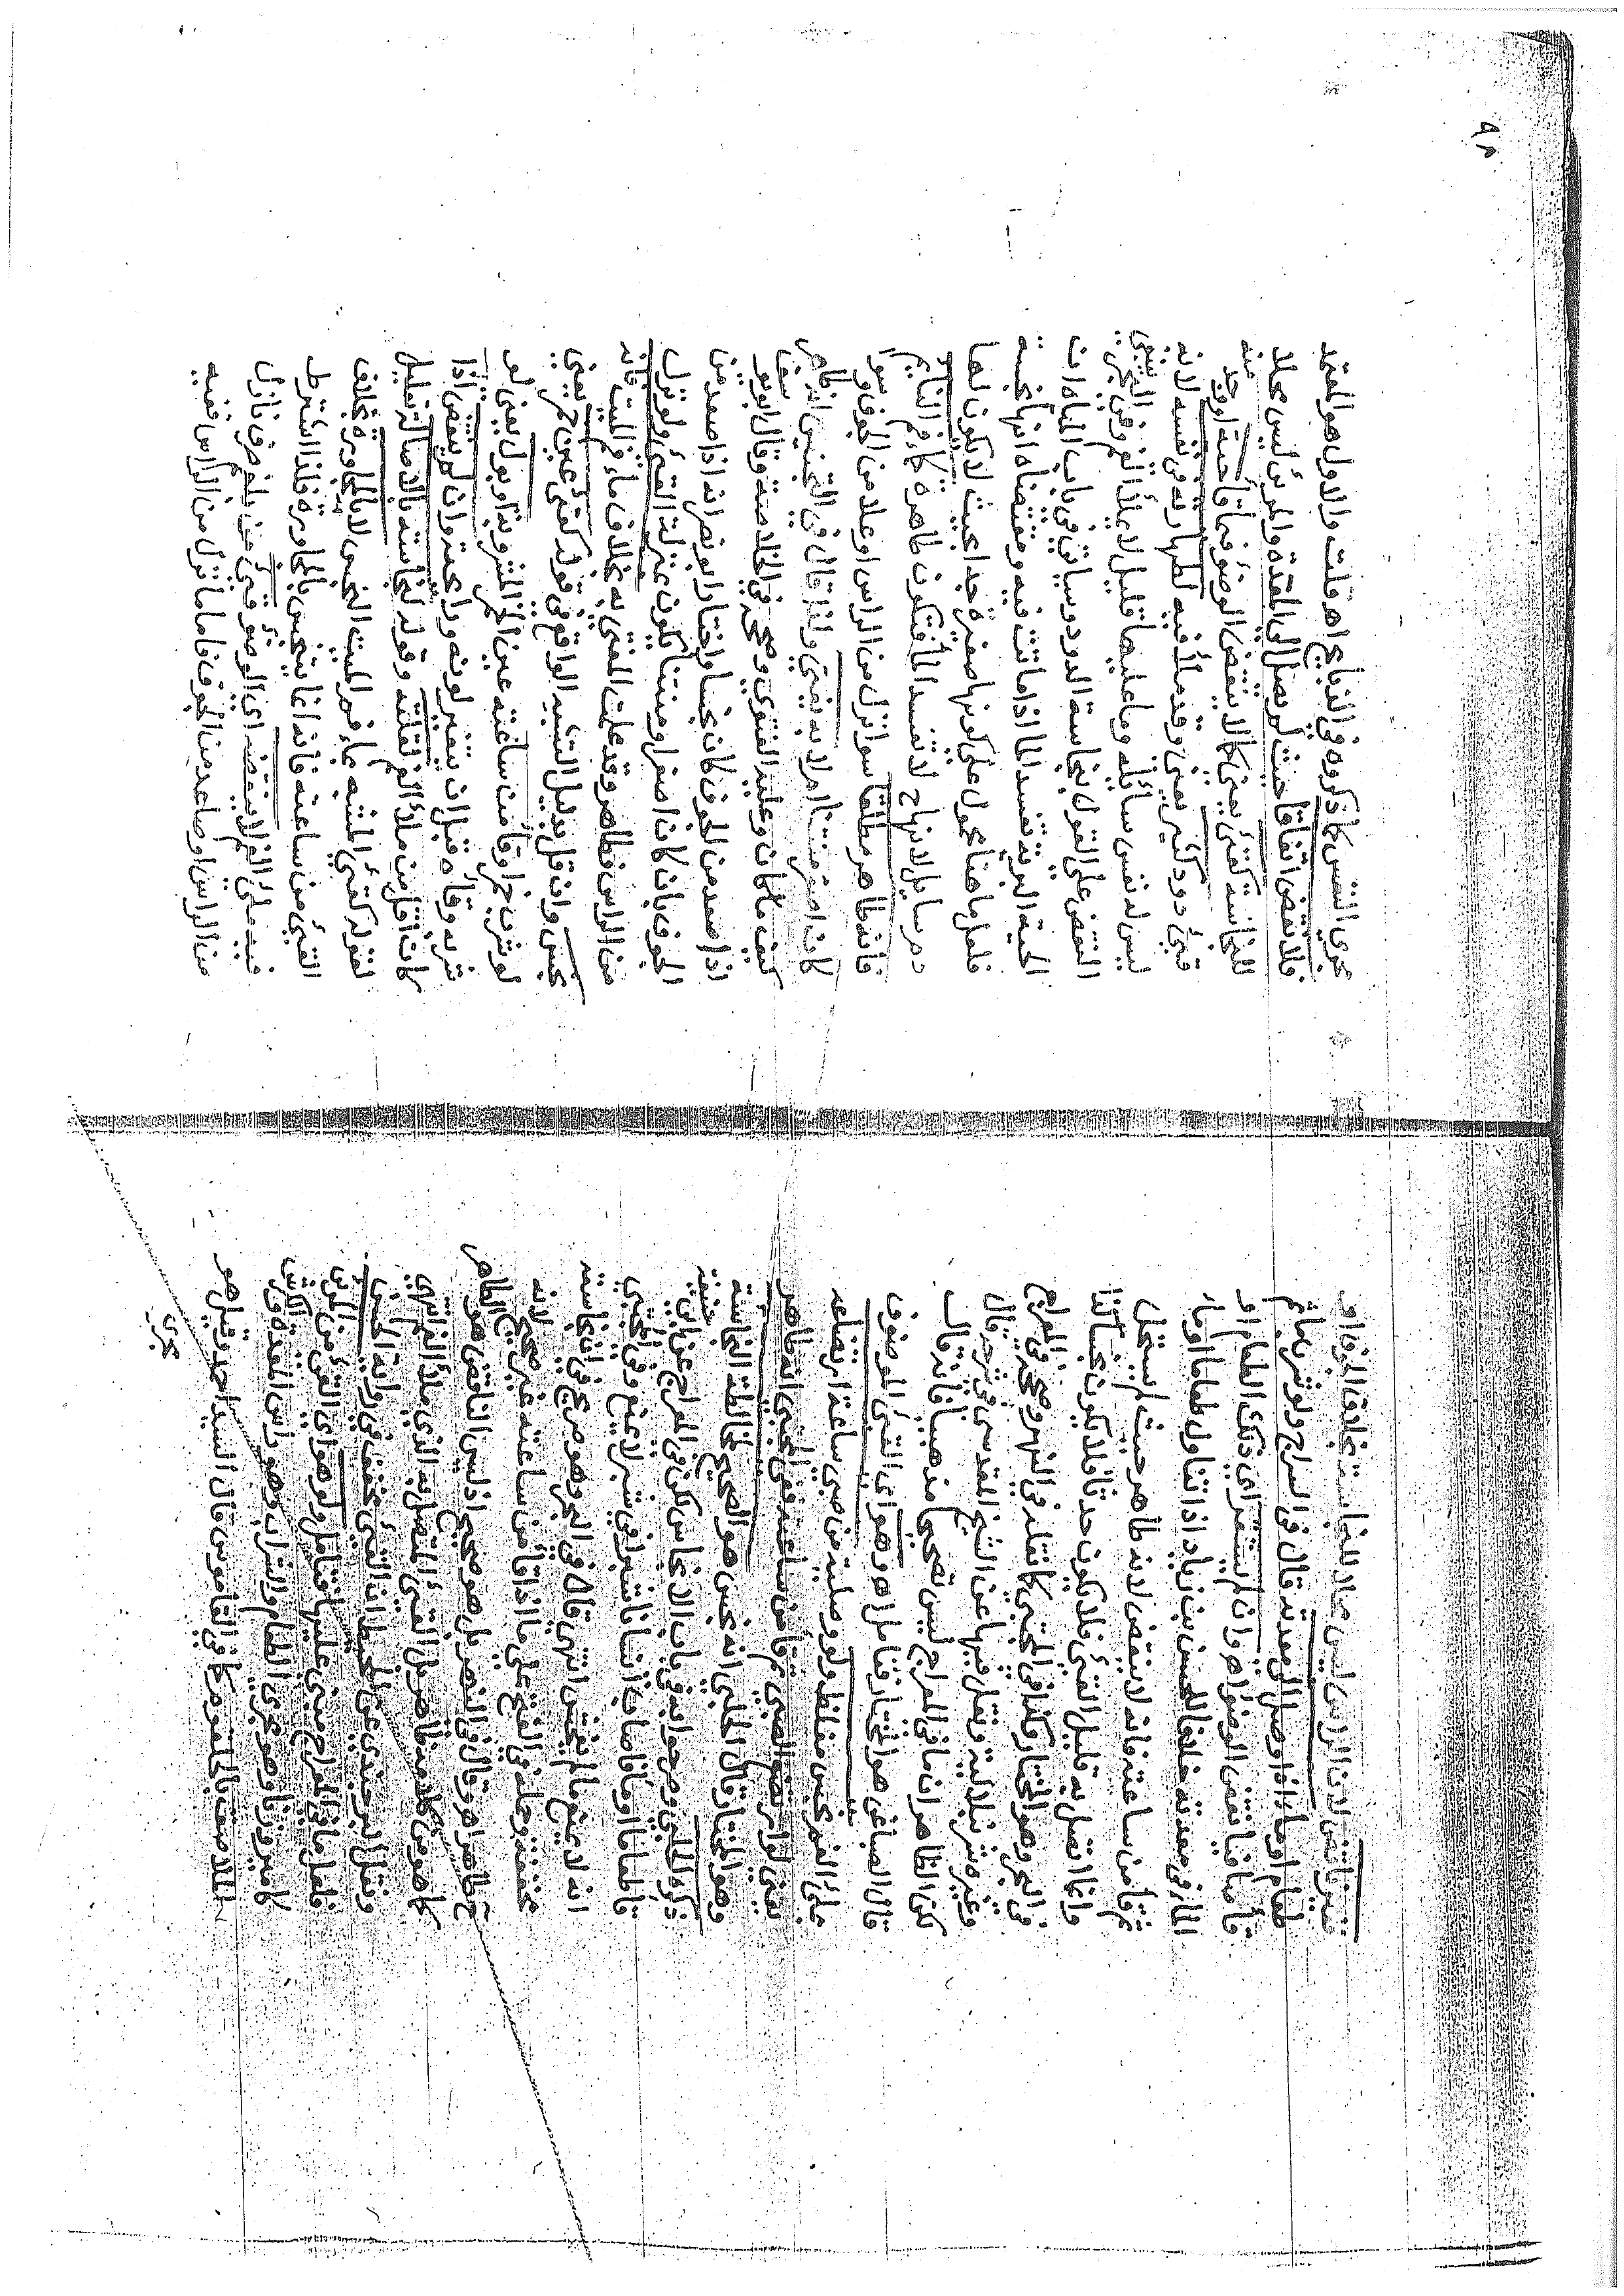 فغير ناقض لان الراس ليس محلا للنجاسة بخلاف الجوف او
طعام او ماء اذا وصل الى معدته قال في السراج ولو شرب ماء ثم
قاء صافيا ينتقض الوضوء اهـ وان لم يستقر اي ذلك الطعام او
الماء في معدته خلافا للحسن بن زياد اذا تناول طعاما او ماء
ثم قاء من ساعته فانه لا ينقض لانه طاهر حيث لم يستحل
وانما اتصل به قليل القيء فلا يكون حدثا فلا يكون نجسا كذا
في البحر وهو المختار وكذا في المجتبى كما نقله في النهر وصححه في المعراج
وغيره شرنبلالية ونقل فيها عن الشيخ المقدسي في شرحه قال
لكن الظاهر ان ما في المعراج ليس تصحيحا مذهبيا فانه قال
قال الصباغي هو المختار فتامل اهـ وهو اي القيء الموصوف
ملئ الفم نجس مغلظ ولو وصلية من صبي ساعة ارتضاعه
يعني لو ارتضع الصبي ثم قاء من ساعته ففي المجتبى انه طاهر
وهو المختار وقال الحلبي انه نجس هو الصحيح لمخالطة النجاسة
ذكره الحلبي وصرحوا به في باب الانجاس لكن في المعراج عن ابي حنيفة
قاء طعاما او ماء فاصاب انسانا شبرا في شبر لا يمنع وفي المجتبى
انه لا يمنع ما لم يفحش انتهى قال في البحر وهو صريح في ان نجاسته
مخففة وحمله في الفتح على ما اذا قاء من ساعته غير صحيح لانه
ح طاهر اهـ وقال في النهر بل هو صحيح اذ ليس الناقض هو الطاهر
كما هو في كلامه ظاهر بل القيء المتصل به الذي ملأ الفم انتهى
ونقل البرجندي عن المحيط ان القيء مخفف في رواية الحسن
فلعل ما في المعراج مبني عليها فتامل ولو هو اي القيء من المريء
كامير وزنا وهو مجرى الطعام والشراب وهو راس المعدة والكرش
اللاصقة بالحلقوم كما في القاموس قال السيد احمد وقيل هو
مجرى
٩٥
مجرى النفس كما ذكروه في الينابيع اه قلت والاول هو المعتمد
فلا نقض اتفاقا حيث لم يصل الى المعدة والمريء ليس محلا
للنجاسة كقيء يعني كما لا ينتقض الوضوء فيما قاء حية او وجد منه
قيء دود كثير يعني وقد ملأ فيه لطهارته في نفسه لانه
ليس له نفس سائلة وما عليها قليل لا يملأ الفم وفي البحر ينبغي
النقض على القول بنجاسة الدود وسياتي في باب المياه ان
الحية البرية تفسد الماء اذا ماتت فيه ومقتضاه انها نجسة
فلعل ما هنا محمول على كونها صغيرة جدا بحيث لا يكون لها
دم سايل لانها ح لا تفسد الماء فتكون طاهرة كماء فم النائم
فانه طاهر مطلقا سوا نزل من الراس او علا من الجوف وسوا
كان اصفر منتنا ام لا به يفتى ولذا قال في التجنيس انه طاهر
كيف ما كان وعليه الفتوى وصححه في الخلاصة وقال ابو يوسف
اذا صعد من الجوف كان نجسا واختار ابو نصر انه اذا صعد من
الجوف بان كان اصفر او منتنا يكون بمنزلة القيء ولو نزل
من الراس فطاهر وقد علمت المفتى به بخلاف ماء فم الميت فانه
نجس وان قل بدليل التشبيه الواقع في قوله كقيء عين خمر يعني
لو شرب خمرا وقاء من ساعته عين الخمر المشروبة او بول يعني لو
شربه وقاءه قبل ان يتغير لونه وريحته وان لم ينقض اذا
كان اقل من ملأ الفم لقلته وقوله لنجاسته بالاصالة تعليل
لقوله كقيء المشبه بماء فم الميت النجس لا بالمجاورة بخلاف
القيء من ساعته فانه انما يتنجس بالمجاورة فلذا اشترط
فيه ملئ الفم لا ينقضه اي الوضوء قيء من بلغم صرف نازل
من الراس او صاعد من الجوف فاما ما نزل من الراس ففيه